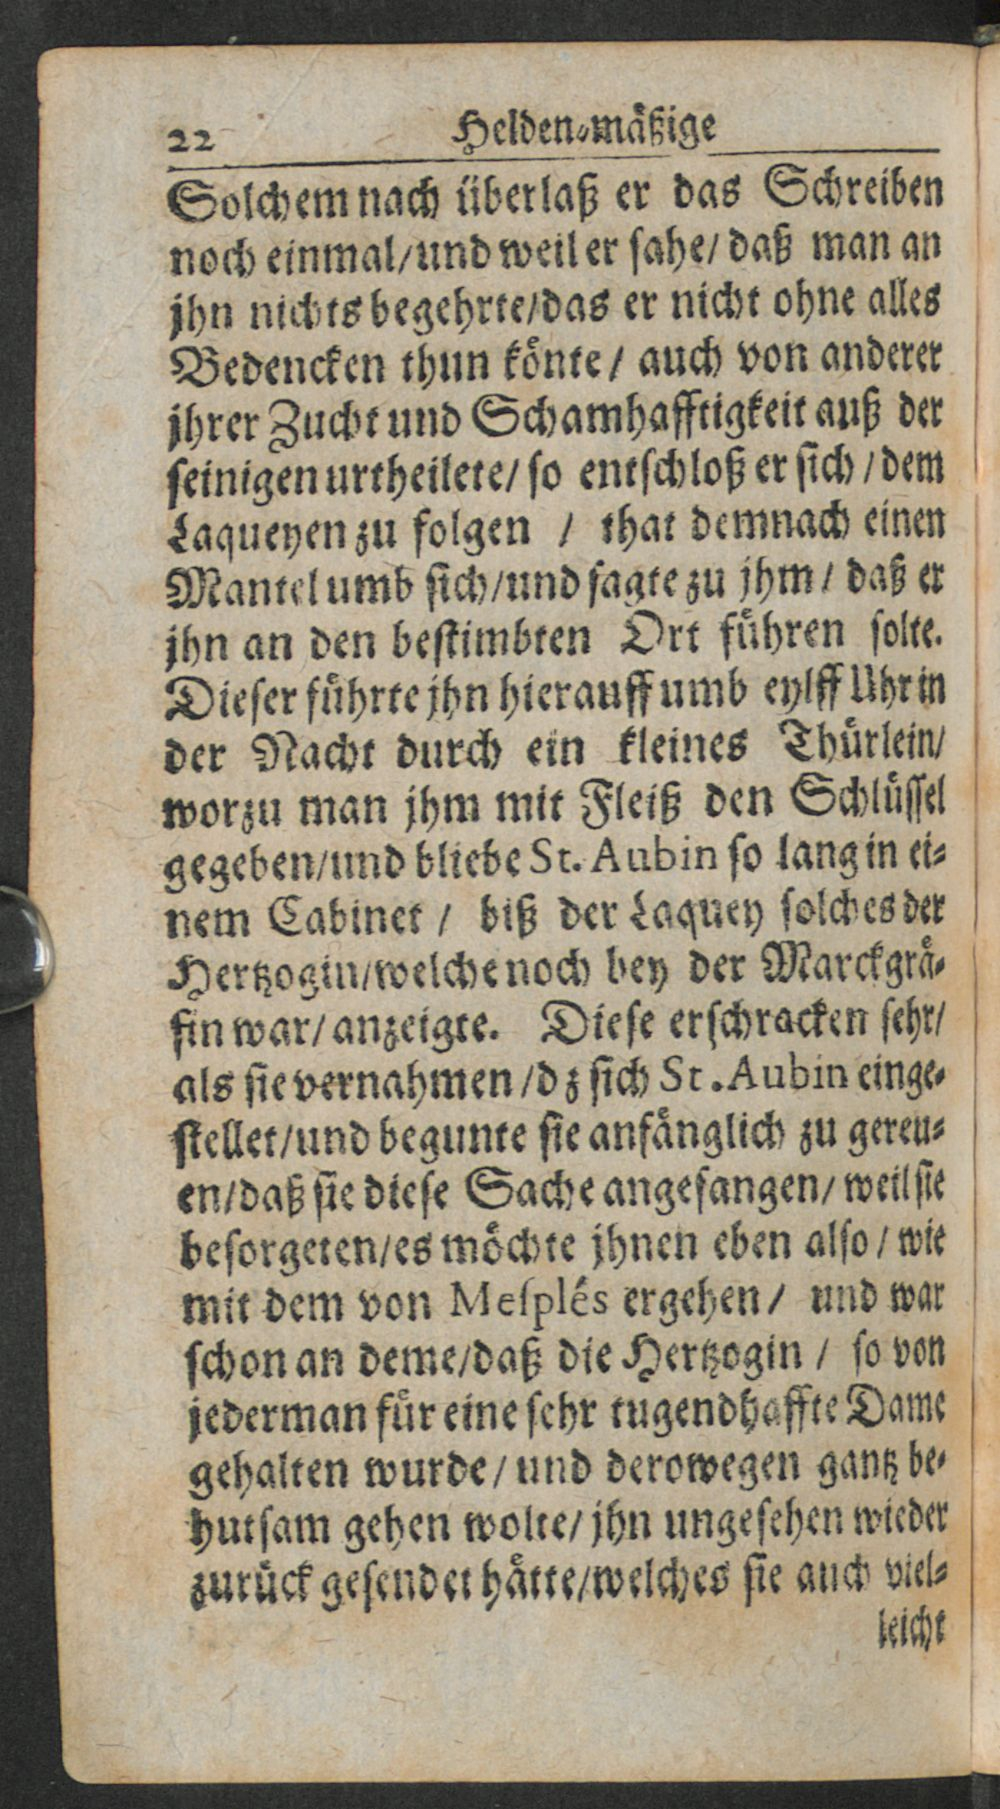 22 Helden-mäßige
Solchem nach überlaß er das Schreiben
noch einmal/und weil er sahe/ daß man an
jhn nichts begehrte/das er nicht ohne alles
Bedencken thun könte/ auch von anderer
jhrer Zucht und Schamhafftigkeit auß der
seinigen urtheilete/ so entschloß er sich/dem
Laqueyen zu folgen / that demnach einen
Mantel umb sich/und sagte zu jhm/ daß er
jhn an den bestimbten Ort führen solte.
Dieser führte jhn hierauff umb eylff Uhr in
der Nacht durch ein kleines Thürlein/
worzu man jhm mit Fleiß den Schlüssel
gegeben/und bliebe St. Aubin so lang in ei-
nem Cabinet / biß der Laquey solches der
Hertzogin/welche noch bey der Marckgrä-
fin war/anzeigte. Diese erschracken sehr/
als sie vernahmen/dz sich St. Aubin einge-
stellet/und begunte sie anfänglich zu gereu-
en/daß sie diese Sache angefangen/ weil sie
besorgeten/es möchte jhnen eben also/ wie
mit dem von Mesplés ergehen/ und war
schon an deme/daß die Hertzogin / so von
jederman für eine sehr tugendhaffte Dame
gehalten wurde/und derowegen gantz be-
hutsam gehen wolte/jhn ungesehen wieder
zurück gesendet hätte/welches sie auch viel-
leicht